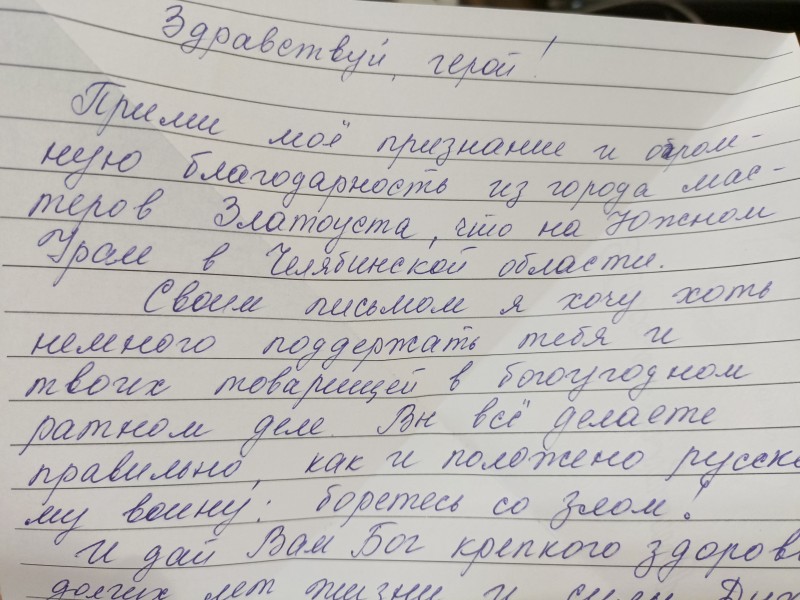 Здравствуй, герой!
Прими моё признание и огром-
ную благодарность из города мас-
теров Златоуста, что на Южном
Урале в Челябинской области.
Своим письмом я хочу хоть
немного поддержать тебя и
твоих товарищей в богоугодном
ратном деле. Вы всё делаете
правильно, как и положено русско
му воину: боретесь со злом!
И дай Вам Бог крепкого здоровь
долгих лет жизни и силы Дух